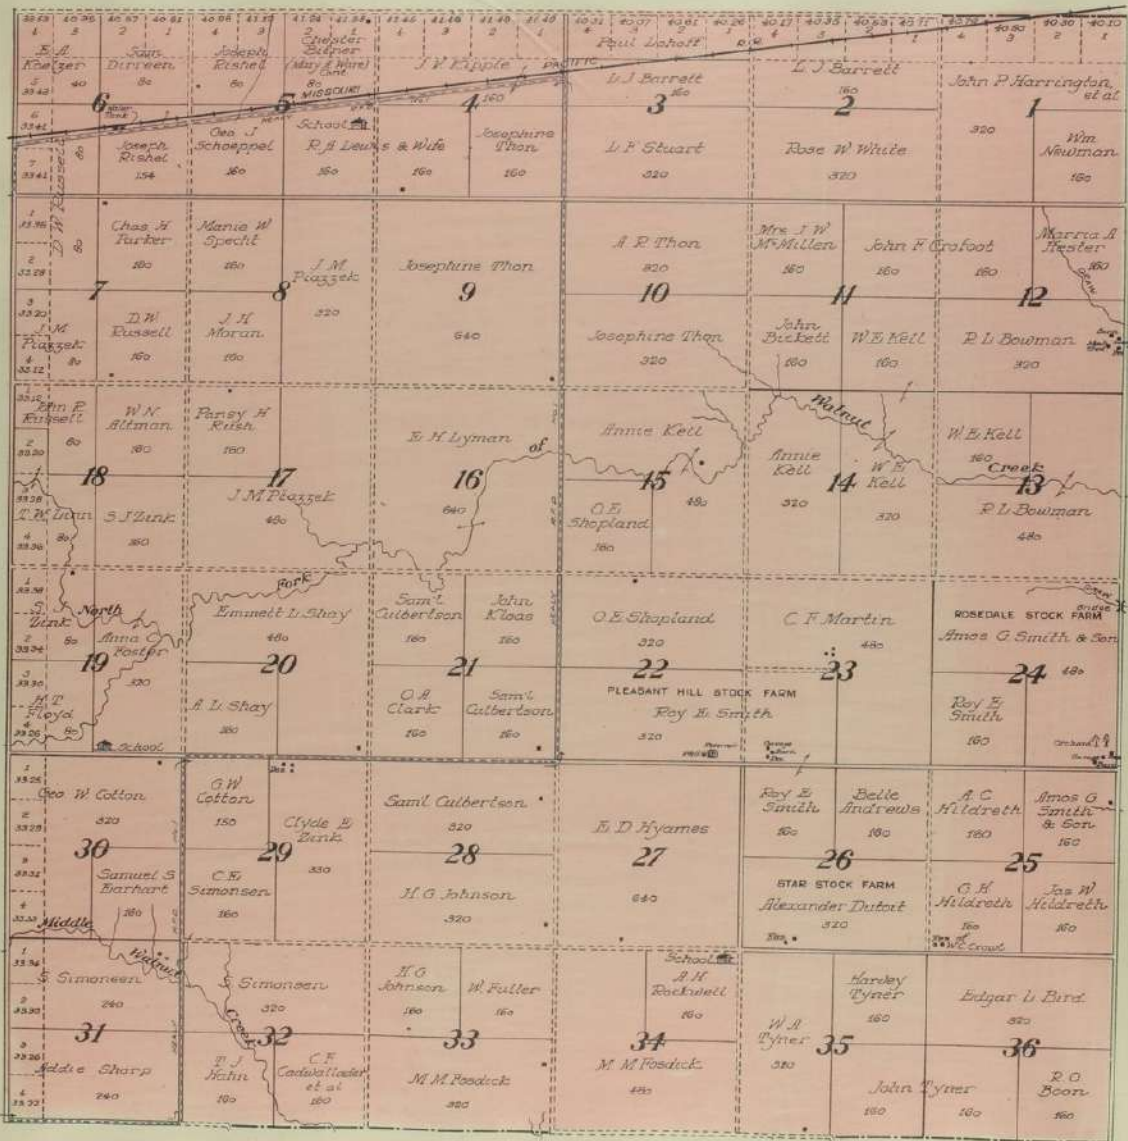 Paul Lohoff
E. A.
Koelzer
40
Sam
Dirreen
80
Joseph
Rishel
80
Chester
Bitner
(Mary A Ware)
Cont.
80
J. V. Kipple
160
PACIFIC
R.R.
MISSOURI
L. J. Barrett
160
L. J. Barrett
160
John P. Harrington,
et al
320
6
5
4
3
2
1
Joseph
Rishel
154
Geo J
Schoeppel
160
School
R. A. Lewis & Wife
160
160
Josephine
Thon
160
L. F. Stuart
320
Rose W. White
320
Wm
Newman
160
D. W. Russell
80
80
Chas. H
Parker
160
Manie W
Specht
160
J. M.
Piazzek
320
Josephine Thon
640
A. R. Thon
320
Mrs J W
McMillen
160
John F Crofoot
160
160
Marria A
Hester
160
7
8
9
10
11
12
J. M.
Piazzek
80
D. W.
Russell
160
J. H.
Moran
160
Josephine Thon
320
John
Bickett
160
W. E. Kell
160
R. L. Bowman
320
Russell
80
W. N.
Altman
160
Pansy H
Rush
160
E. H. Lyman
640
of
Annie Kell
480
Walnut
Annie
Kell
320
W. E.
Kell
320
W. E. Kell
160
Creek
18
17
16
15
14
13
T. W. Lunn
80
S. J. Zink
160
J. M. Piazzek
480
O. E.
Shopland
160
R. L. Bowman
480
Fork
North
S.
Zink
80
Anna C
Foster
320
Emmett L. Shay
480
Sam'l
Culbertson
160
John
Kloas
160
O. E. Shopland
320
C. F. Martin
480
Bridge
ROSEDALE STOCK FARM
Amos G. Smith & Son
480
19
20
21
22
23
24
H. T.
Floyd
80
School
A. L. Shay
160
O. A.
Clark
160
Sam'l
Culbertson
160
PLEASANT HILL STOCK FARM
Roy E. Smith
320
Roy E.
Smith
160
Orchard
Geo. W. Cotton
320
G. W.
Cotton
150
Clyde E
Zink
330
Sam'l Culbertson
320
E. D. Hyames
640
Roy E
Smith
160
Belle
Andrews
160
A. C.
Hildreth
160
Amos G
Smith
& Son
160
30
29
28
27
26
25
Samuel S
Earhart
160
C. E.
Simonsen
160
H. G. Johnson
320
STAR STOCK FARM
Alexander Dutoit
320
G. H.
Hildreth
160
Jas W.
Hildreth
160
Res of
W. C. Crowl
Middle
Walnut
Creek
S. Simonsen
240
S. Simonsen
320
H. G.
Johnson
160
W. Fuller
160
School
A. H.
Rockwell
160
W. A.
Tyner
320
Harvey
Tyner
160
Edgar L. Bird
320
31
32
33
34
35
36
Addie Sharp
240
T. J.
Hahn
160
C. F.
Cadwallader
et al
160
M. M. Fosdick
320
M. M. Fosdick
480
John Tyner
160
160
R. O.
Boon
160